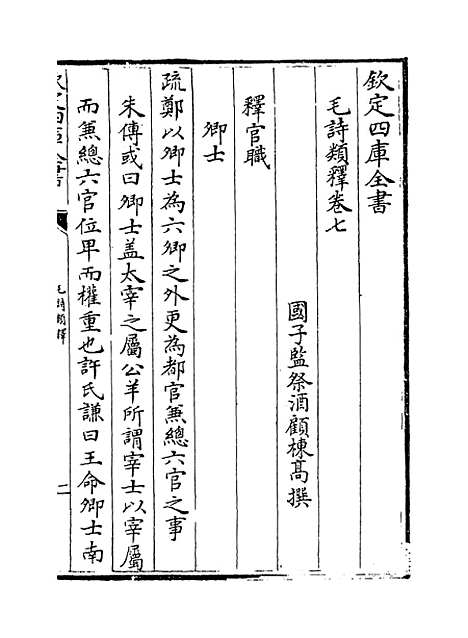 欽定四庫全書
毛詩類釋卷七
國子監祭酒顧棟高撰
釋官職
卿士
疏鄭以卿士為六卿之外更為都官兼總六官之事
朱傳或曰卿士盖太宰之屬公羊所謂宰士以宰屬
而兼總六官位卑而權重也許氏謙曰王命卿士南
毛詩類釋